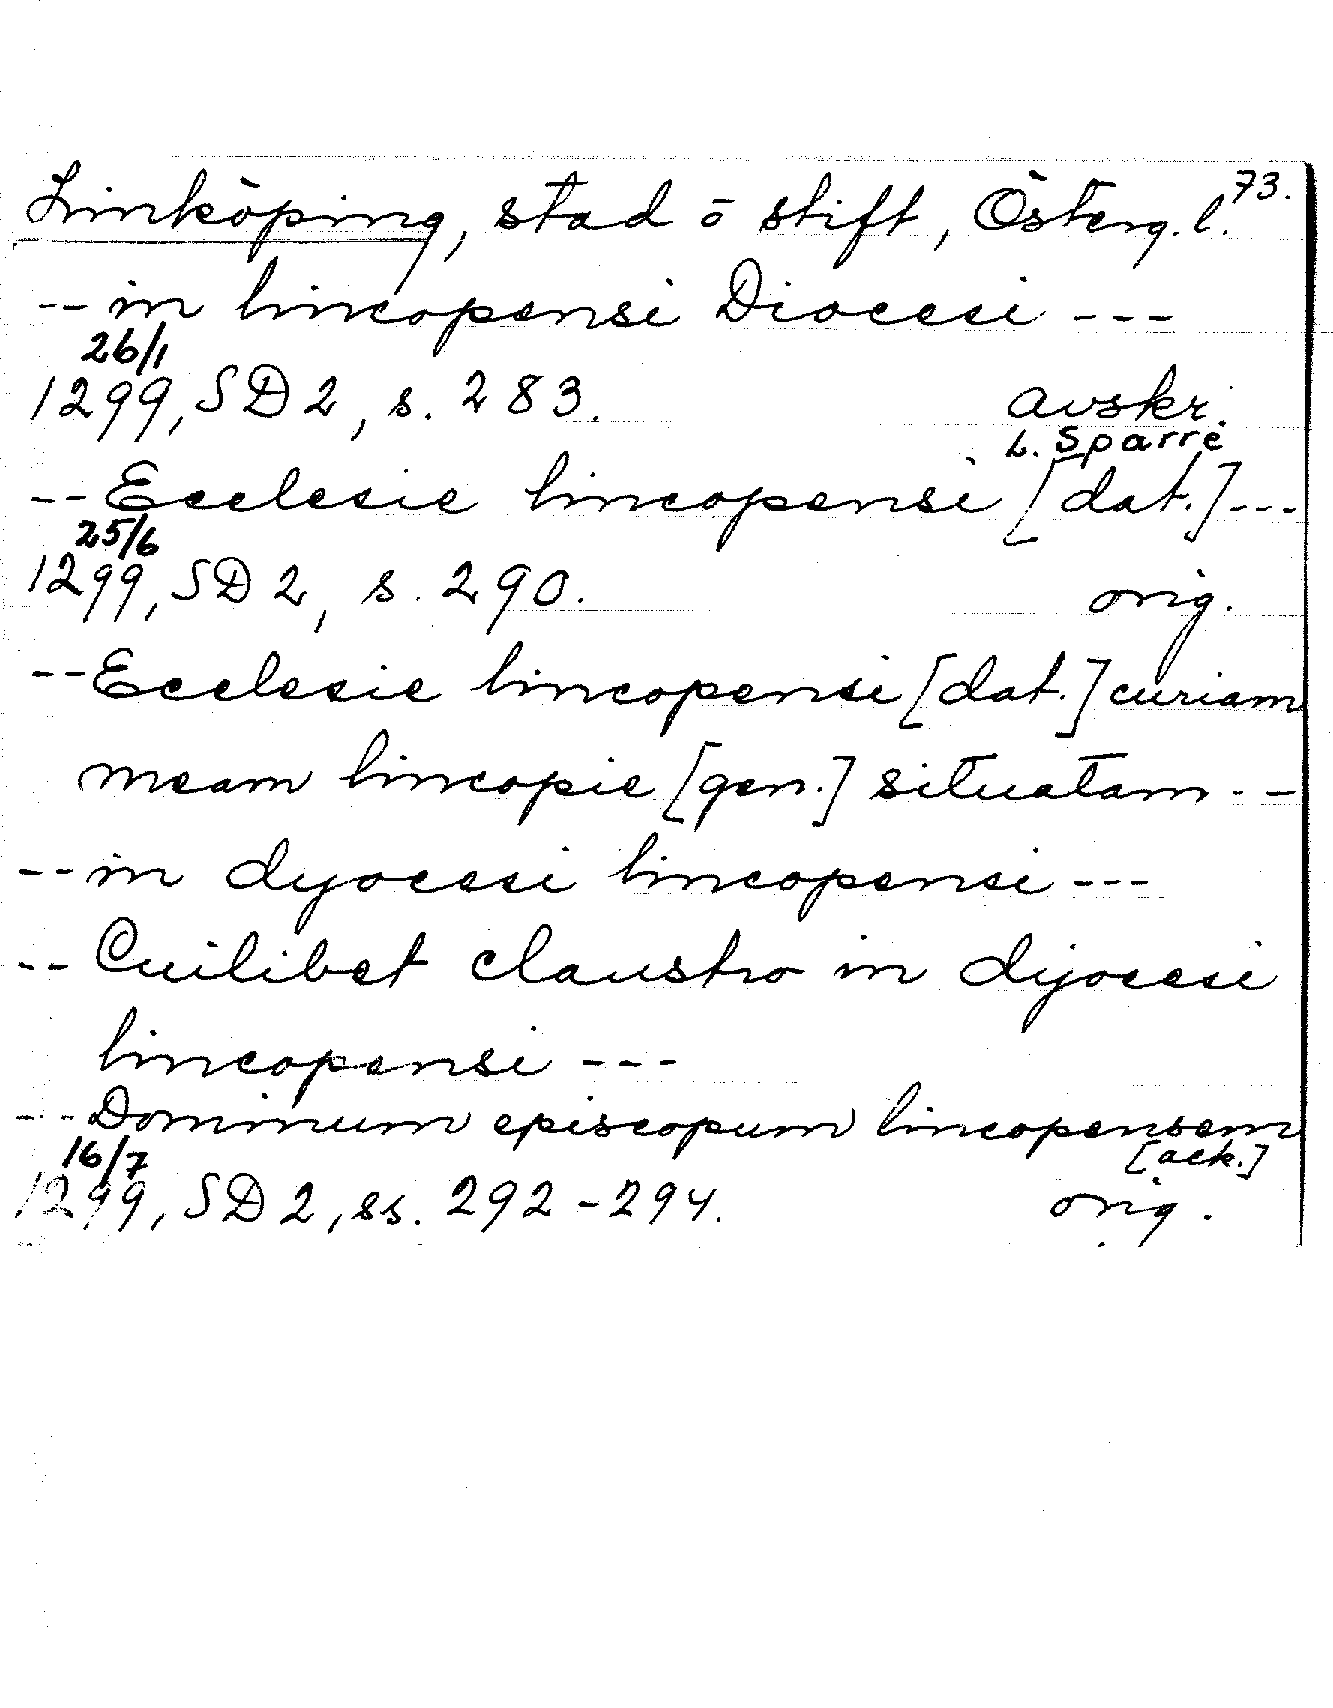 73.
Linköping, stad o stift, Österg. l.
-- in lincopensi Diocesi ---
26/1
1299, SD 2, s. 283. avskr.
L. Sparre
-- Ecclesie lincopensi [dat.] ---
25/6
1299, SD 2, s. 290. orig.
-- Ecclesie lincopensi [dat.] curiam
meam lincopie [gen.] situatam --
-- in dyocesi lincopensi ---
-- Cuilibet claustro in dyocesi
lincopensi ---
--- Dominum episcopum lincopensem
[ack.]
16/7
1299, SD 2, ss. 292-294. orig.